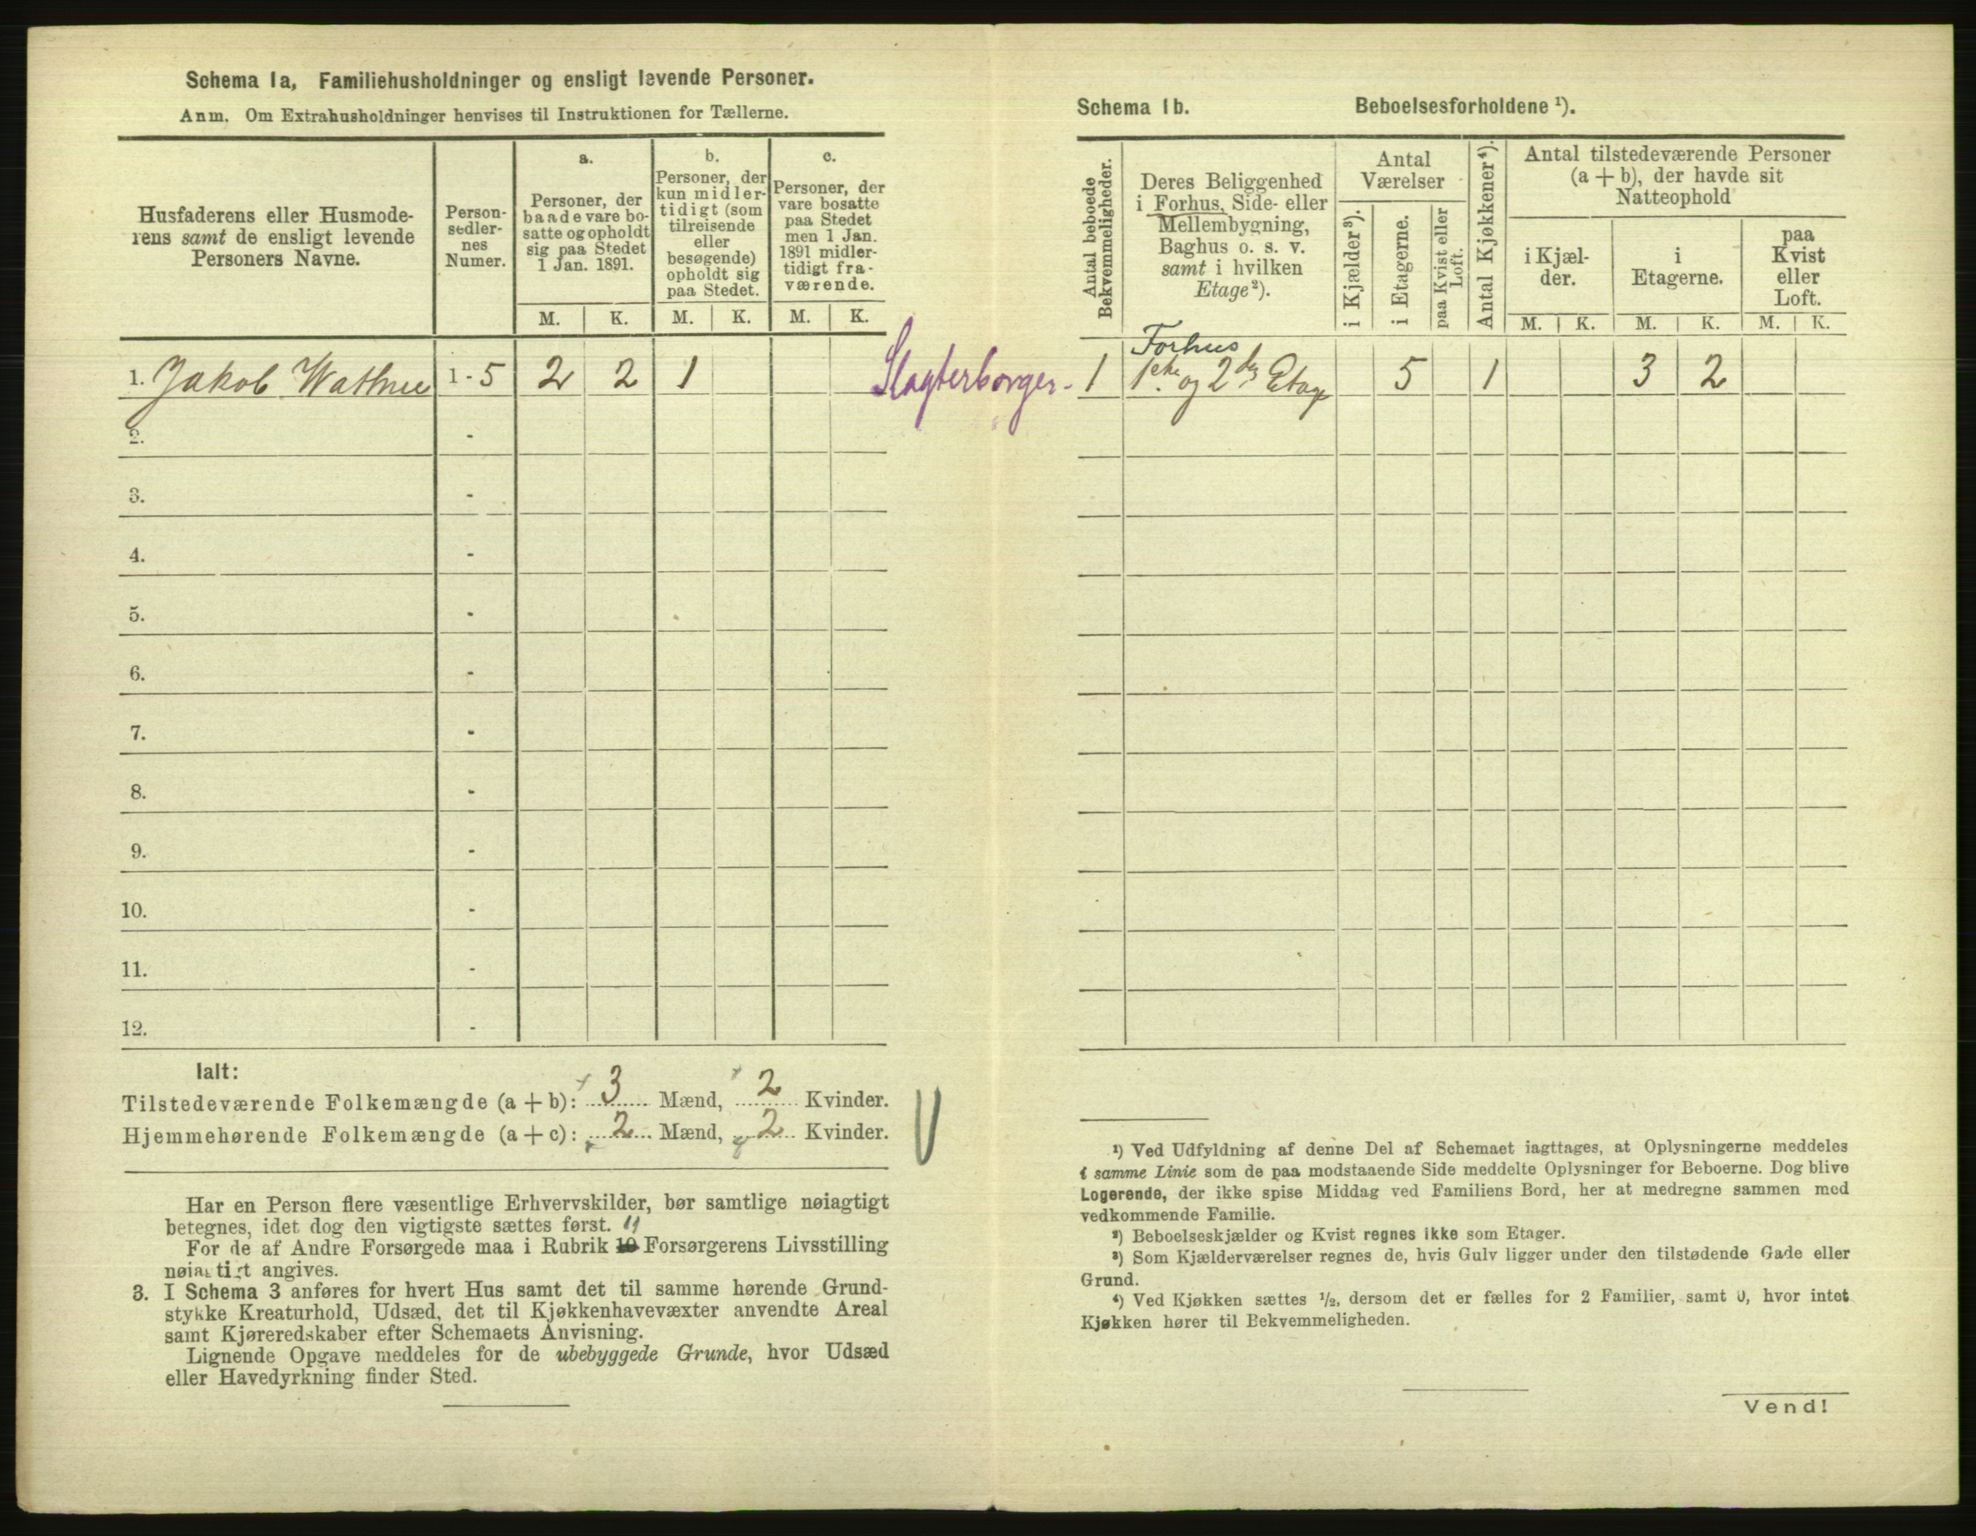 Schema 1a, Familiehusholdninger og ensligt levende Personer.
Anm. Om Extrahusholdninger henvises til Instruktionen for Tællerne.
Husfaderens eller Husmode-
rens samt de ensligt levende
Personers Navne.
Person-
sedler-
nes
Numer.
a.
Personer, der
baade vare bo-
satte og opholdt
sig paa Stedet
1 Jan. 1891.
b.
Personer, der
kun midler-
tidigt (som
tilreisende
eller
besøgende)
opholdt sig
paa Stedet.
c.
Personer, der
vare bosatte
paa Stedet
men 1 Jan.
1891 midler-
tidigt fra-
værende.
M. K. M. K. M. K.
1. Jakob Wathne 1 - 5 2 2 1
Slagterborger.
2. -
3. -
4. -
5. -
6. -
7. -
8. -
9. -
10. -
11. -
12. -
Ialt:
Tilstedeværende Folkemængde (a + b): 3 Mænd, 2 Kvinder.
Hjemmehørende Folkemængde (a + c): 2 Mænd, 2 Kvinder.
Har en Person flere væsentlige Erhvervskilder, bør samtlige nøiagtigt
betegnes, idet dog den vigtigste sættes først.
11
For de af Andre Forsørgede maa i Rubrik 10 Forsørgerens Livsstilling
nøiagtigt angives.
3. I Schema 3 anføres for hvert Hus samt det til samme hørende Grund-
stykke Kreaturhold, Udsæd, det til Kjøkkenhavevæxter anvendte Areal
samt Kjøreredskaber efter Schemaets Anvisning.
Lignende Opgave meddeles for de ubebyggede Grunde, hvor Udsæd
eller Havedyrkning finder Sted.
Schema 1b. Beboelsesforholdene ¹).
Antal beboede
Bekvemmeligheder.
Deres Beliggenhed
i Forhus, Side- eller
Mellembygning,
Baghus o. s. v.
samt i hvilken
Etage²).
Antal
Værelser
i Kjælder³).
i Etagerne.
paa Kvist eller
Loft.
Antal Kjøkkener⁴).
Antal tilstedeværende Personer
(a + b), der havde sit
Natteophold
i Kjæl-
der.
i
Etagerne.
paa
Kvist
eller
Loft.
M. K. M. K. M. K.
Forhus
1 1ste og 2den Etage 5 1 3 2
¹) Ved Udfyldning af denne Del af Schemaet iagttages, at Oplysningerne meddeles
i samme Linie som de paa modstaaende Side meddelte Oplysninger for Beboerne. Dog blive
Logerende, der ikke spise Middag ved Familiens Bord, her at medregne sammen med
vedkommende Familie.
²) Beboelseskjælder og Kvist regnes ikke som Etager.
³) Som Kjælderværelser regnes de, hvis Gulv ligger under den tilstødende Gade eller
Grund.
⁴) Ved Kjøkken sættes ½, dersom det er fælles for 2 Familier, samt 0, hvor intet
Kjøkken hører til Bekvemmeligheden.
Vend!